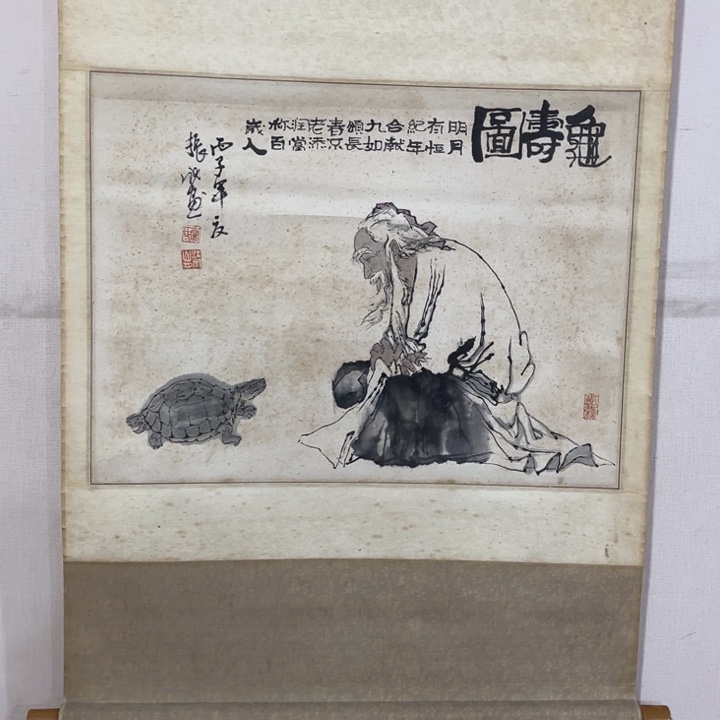 龜壽圖
明月
有恒
紀年
合献
九如
頌長
春不
老添
當
称百
歲人
丙子年夏
振 畫